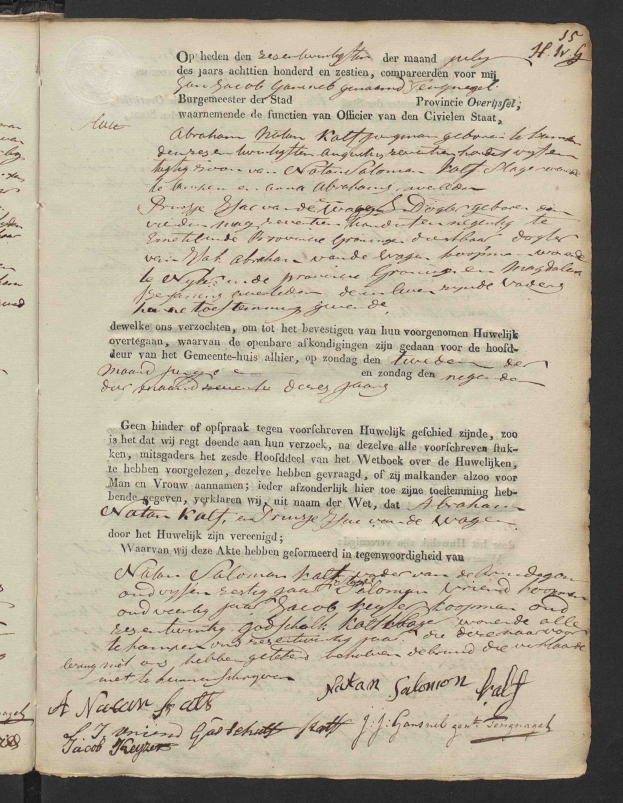 15
H. W. G
Op heden den zesentwintigsten der maand july
des jaars achttien honderd en zestien, compareerden voor mij
Jan Jacob Gansneb genaamd Tengnagel
Burgemeester der Stad Provincie Overijssel,
waarnemende de functien van Officier van den Civielen Staat,
Abraham Natan Kalf jongman geboren te Kampen
den zes en twintigsten Augustus zeventien hondert
zoon van Natan Salomon Kalf Slager wonende
te Campen en anna Abrahams, overleden
Prinsje Isac van de Wagen Dogter geboren den
vierden may zeventien hondert en negentig te
Provincie Groningen dienstbaar dogter
van Abraham van de Wagen koopman wonende
te in de provincie Groningen en Magdalena
overleden de vaders
toestemming
dewelke ons verzochten, om tot het bevestigen van hun voorgenomen Huwelijk
overtegaan, waarvan de openbare afkondigingen zijn gedaan voor de hoofd-
deur van het Gemeente-huis alhier, op zondag den tweeden der
Maand en zondag den negenden
der maand deses jaars
Geen hinder of opspraak tegen voorschreven Huwelijk geschied zijnde, zoo
is het dat wij regt doende aan hun verzoek, na dezelve alle voorschreven stuk-
ken, mitsgaders het zesde Hoofddeel van het Wetboek over de Huwelijken,
te hebben voorgelezen, dezelve hebben gevraagd, of zij malkander alzoo voor
Man en Vrouw aannamen; ieder afzonderlijk hier toe zijne toestemming heb-
bende gegeven, verklaren wij, uit naam der Wet, dat Abraham
Natan Kalf, en Prinsje Isac van de Wagen
door het Huwelijk zijn vereenigd;
Waarvan wij deze Akte hebben geformeerd in tegenwoordigheid van
Natan Salomon Kalf vader van de Bruidegom
oud vyf en zestig jaar Salomon Vriend koopman
oud veertig jaar Jacob Keyser koopman oud
zesentwintig Godschalk Kalf wonende alle
te kampen oud zesentwintig jaar die deze na voor
lezing met ons hebben getekend behalven de bruid die verklaarde
niet te kunnen schryven
A Natan Kalf Natan Salomon Kalf
S. J. vriend Godschalk Kalf J: J: Gansneb gent Tengnagel
Jacob Keyzer